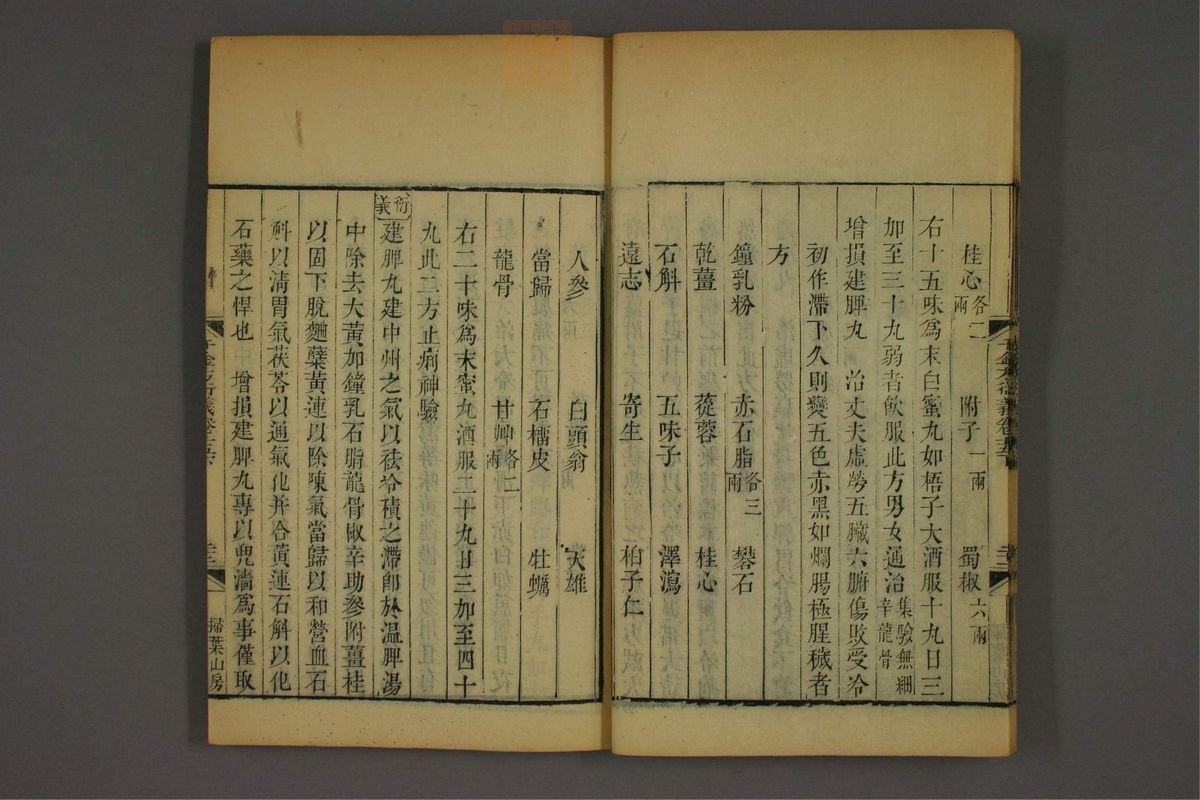 桂心各二兩 附子一兩 蜀椒六兩
右十五味爲末白蜜丸如梧子大酒服十丸日三
加至三十丸弱者飲服此方男女通治集驗無細辛龍骨
增損建脾丸 治丈夫虛勞五臟六腑傷敗受冷
初作滯下久則變五色赤黑如爛腸極腥穢者
方
鐘乳粉 赤石脂各三兩 礬石
乾薑 蓯蓉 桂心
石斛 五味子 澤瀉
遠志 寄生 柏子仁
人參 白頭翁 天雄
當歸 石橊皮 牡蠣
龍骨 甘艸各二兩
右二十味爲末蜜丸酒服二十丸日三加至四十
丸此二方止痢神驗
衍義 建脾丸建中州之氣以祛冷積之滯卽於温脾湯
中除去大黃加鐘乳石脂龍骨椒辛助參附薑桂
以固下脫麯蘗黃連以除陳氣當歸以和營血石
斛以清胃氣茯苓以通氣化幷合黃連石斛以化
石藥之悍也 增損建脾丸專以兜濇爲事僅取
千金方衍義卷十五
掃葉山房